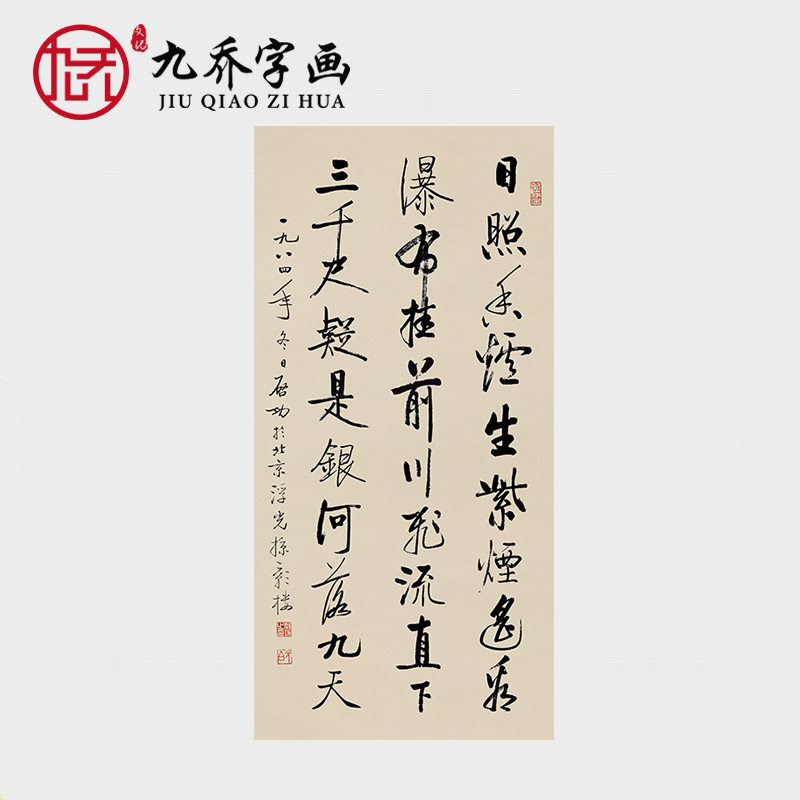 文化
九乔字画
JIU QIAO ZI HUA
日照香爐生紫煙遙看
瀑布掛前川飛流直下
三千尺疑是銀河落九天
一九八四年冬日启功於北京浮光掠影楼